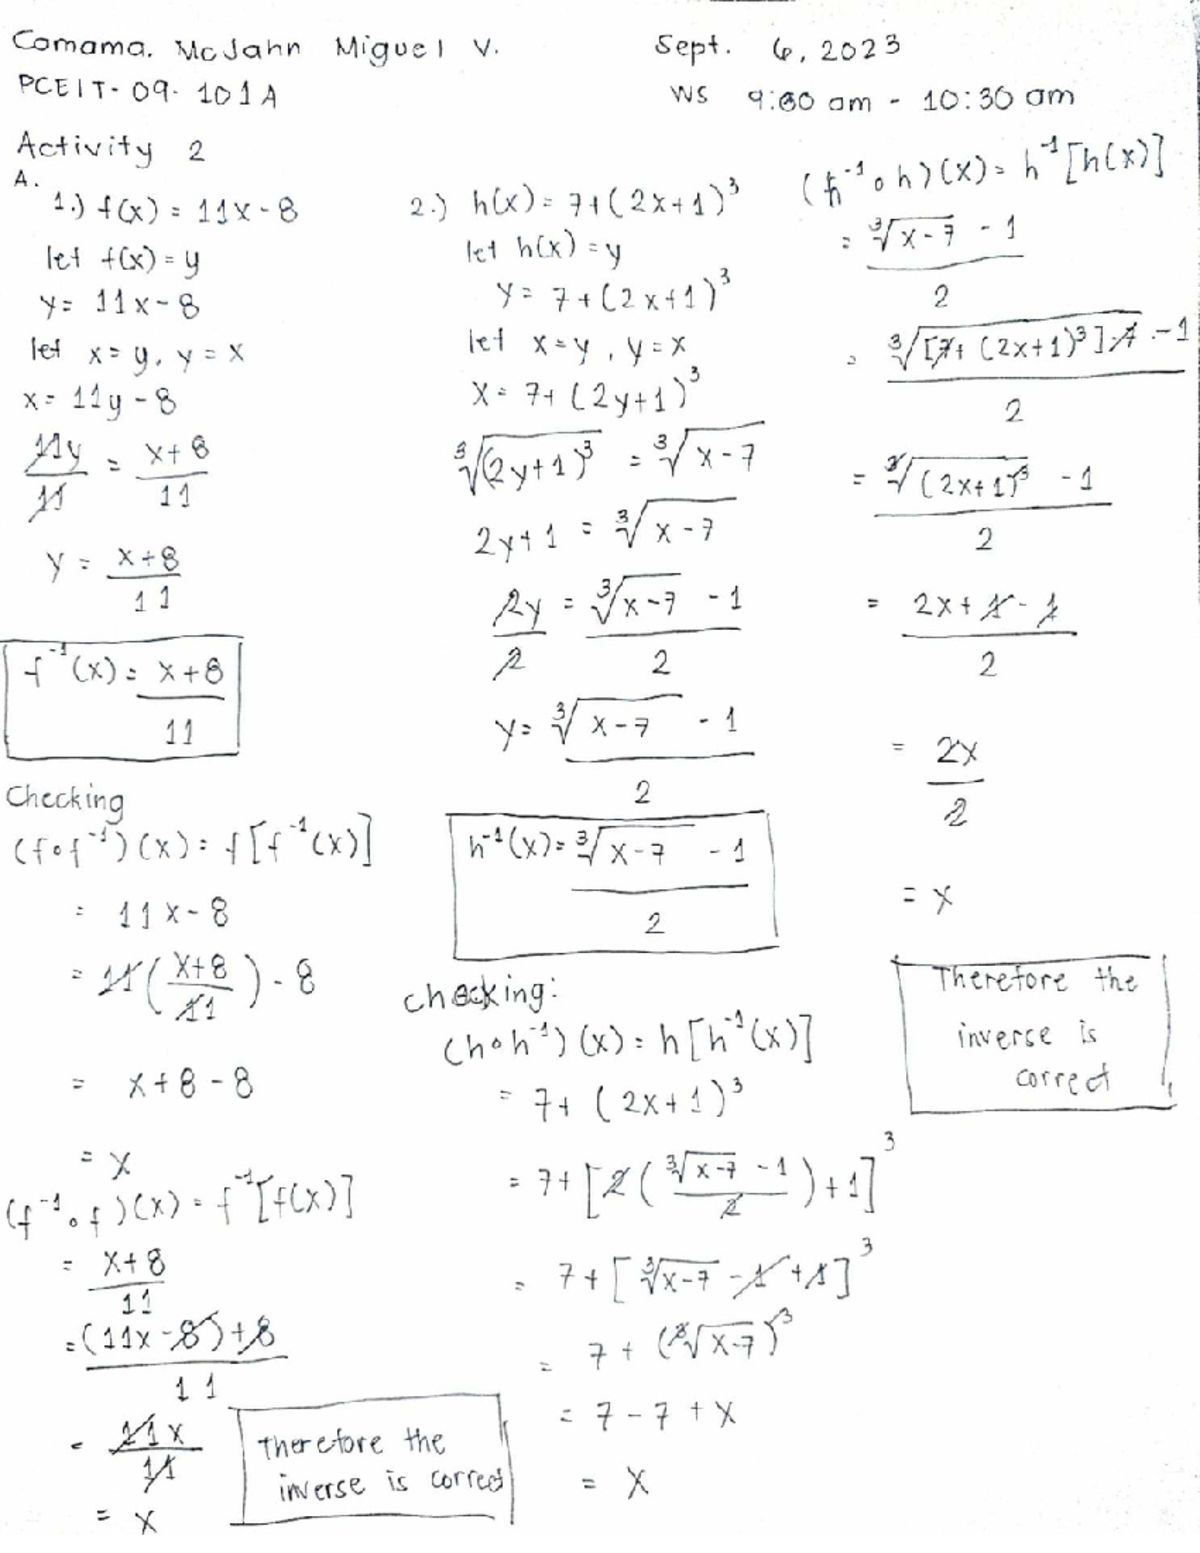 Comama. McJahn Miguel V.
Sept. 6, 2023
PCEIT-09-101A
WS 9:00 am - 10:30 am
Activity 2
A.
1.) f(x) = 11x - 8
let f(x) = y
y = 11x - 8
let x = y, y = x
x = 11y - 8
11y/11 = (x+8)/11
y = (x+8)/11
f⁻¹(x) = (x+8)/11
Checking
(f∘f⁻¹)(x) = f[f⁻¹(x)]
= 11x - 8
= 11((x+8)/11) - 8
= x+8-8
= x
(f⁻¹∘f)(x) = f⁻¹[f(x)]
= (x+8)/11
= ((11x-8)+8)/11
= 11x/11
= x
Therefore the
inverse is correct
2.) h(x) = 7+(2x+1)³
let h(x) = y
y = 7+(2x+1)³
let x = y, y = x
x = 7+(2y+1)³
∛(2y+1)³ = ∛(x-7)
2y+1 = ∛(x-7)
2y/2 = (∛(x-7) - 1)/2
y = (∛(x-7) - 1)/2
h⁻¹(x) = (∛(x-7) - 1)/2
checking:
(h∘h⁻¹)(x) = h[h⁻¹(x)]
= 7+(2x+1)³
= 7+[2((∛(x-7) - 1)/2)+1]³
= 7+[∛(x-7) - 1+1]³
= 7+(∛(x-7))³
= 7-7+x
= x
(h⁻¹∘h)(x) = h⁻¹[h(x)]
= (∛(x-7) - 1)/2
= (∛([7+(2x+1)³]-7) - 1)/2
= (∛(2x+1)³ - 1)/2
= (2x+1-1)/2
= 2x/2
= x
Therefore the
inverse is
correct